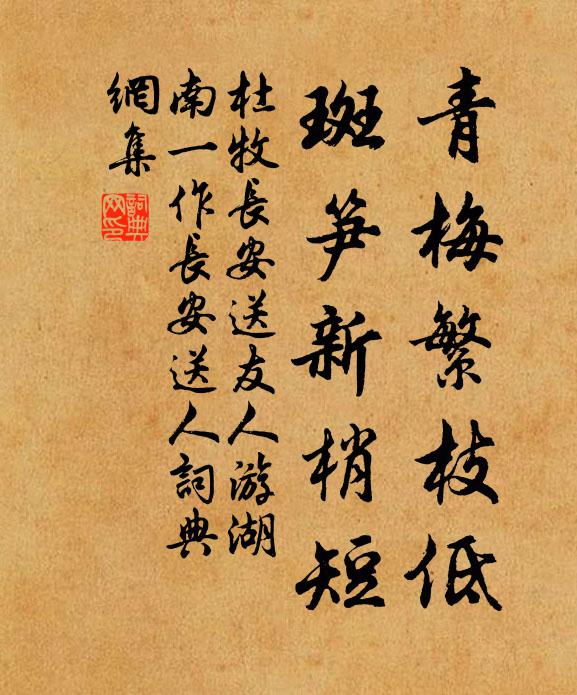 青梅繁枝低
斑笋新梢短
杜牧長安送友人游湖
南一作長安送人詞典
網集
詞典
网印